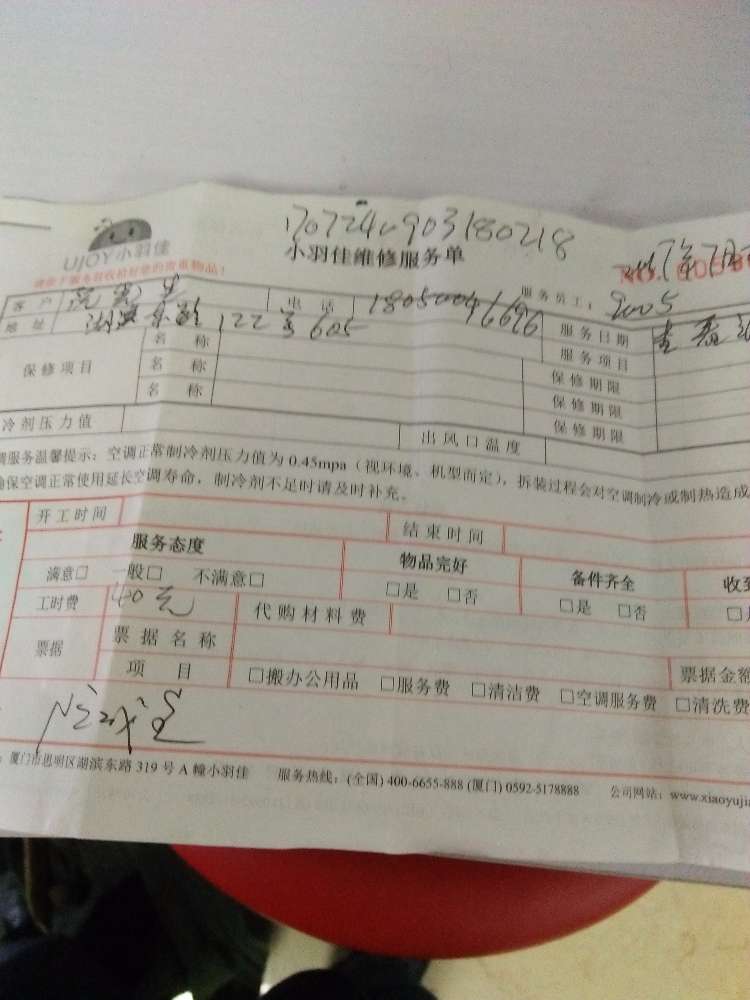 1707240903180218
UJOY小羽佳
小羽佳维修服务单
请在服务前收拾好您的贵重物品！
服务员工： 9005
客户 电话 18050046696 服务日期
地址 122号605 服务项目
保修项目 名称 保修期限
名称 保修期限
名称 保修期限
冷剂压力值 出风口温度
调服务温馨提示：空调正常制冷剂压力值为 0.45mpa（视环境、机型而定），拆装过程会对空调制冷或制热造成
确保空调正常使用延长空调寿命，制冷剂不足时请及时补充。
开工时间 结束时间
服务态度 物品完好 备件齐全 收到
满意□ 一般□ 不满意□ □是 □否 □是 □否
工时费 40元 代购材料费
票据 票据名称 票据金额
项目 □搬办公用品 □服务费 □清洁费 □空调服务费 □清洗费
：厦门市思明区湖滨东路 319 号 A 幢小羽佳 服务热线：(全国) 400-6655-888 (厦门) 0592-5178888 公司网站：www.xiaoyujia